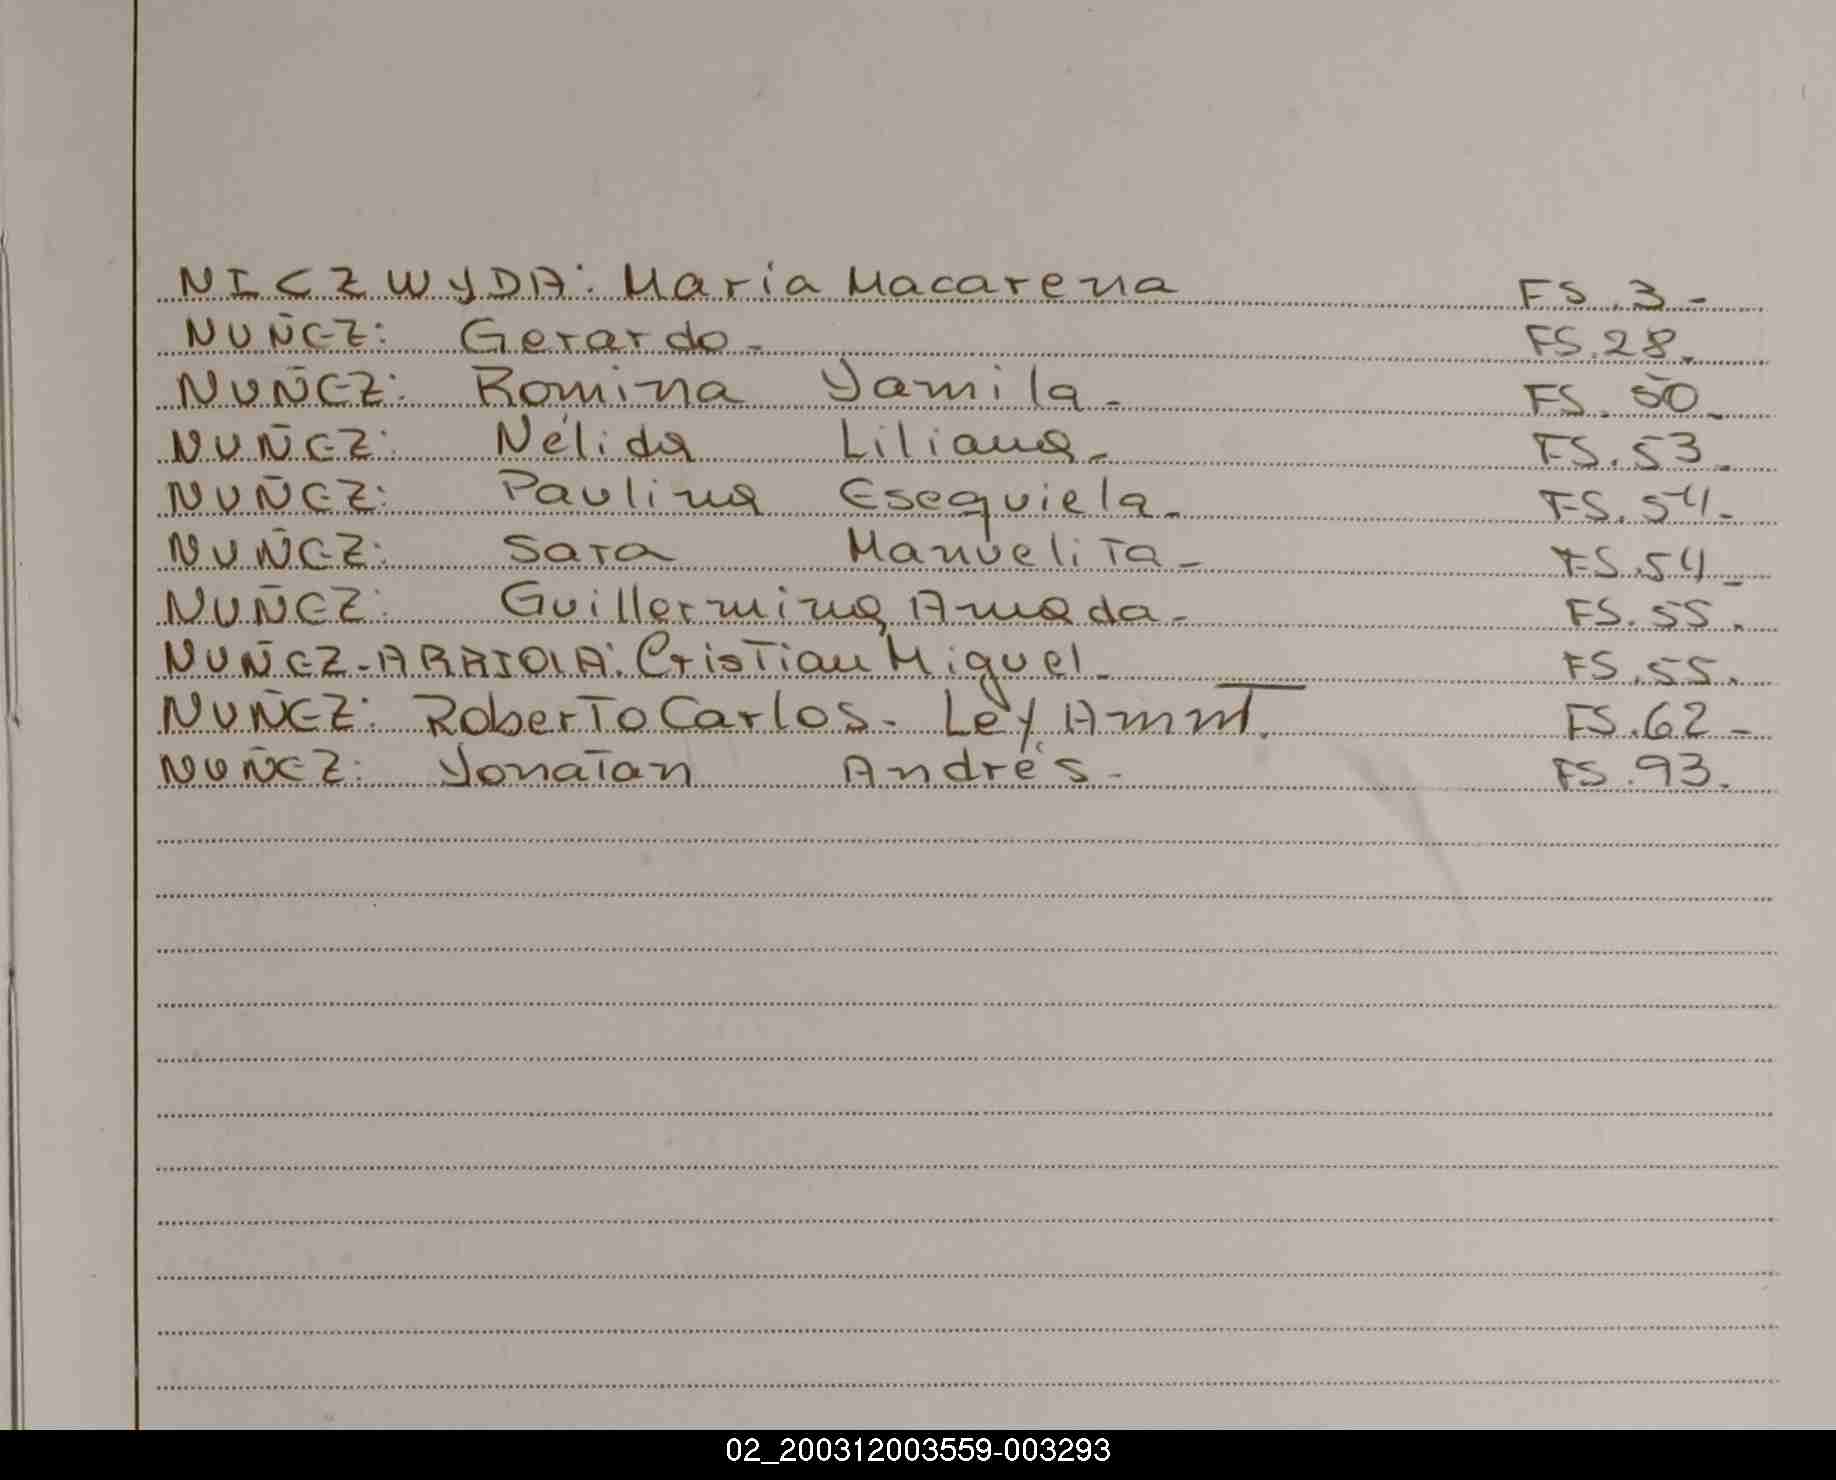 NICZWYDA: Maria Macarena FS.3-
NUÑEZ: Gerardo- FS.28.
NUÑEZ: Romina Yamila- FS.50.
NUÑEZ: Nélida Liliana- FS.53-
NUÑEZ: Paulina Esequiela- FS.54-
NUÑEZ: Sara Manuelita- FS.54-
NUÑEZ: Guillermina Amada- FS.55.
NUÑEZ-ARRIOLA: Cristian Miguel- FS.55.
NUÑEZ: Roberto Carlos- Ley. FS.62-
NUÑEZ: Yonatan Andrés- FS.93.
02_200312003559-003293